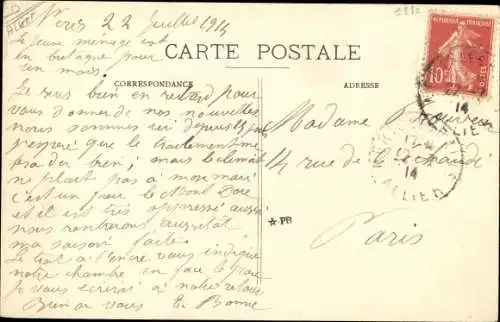 Néris 22 Juillet 1914
Le jeune ménage est
en Bretagne pour
un mois
CARTE POSTALE
CORRESPONDANCE
ADRESSE
Je suis bien en retard pour
vous donner de nos nouvelles
nous sommes ici depuis
j'espère que le traitement me
fera du bien, mais le climat
ne plaît pas à mon mari
c'est un peu le Mont Dore
et il est très oppressé aussi
nous rentrerons aussitôt
ma saison faite
Le trait à l'encre vous indique
notre chambre en face le parc
Je vous écrirai à notre retour
Bien à vous E. Bonne
Madame
14 rue de la
Paris
★ PB
10
14
ALLIER